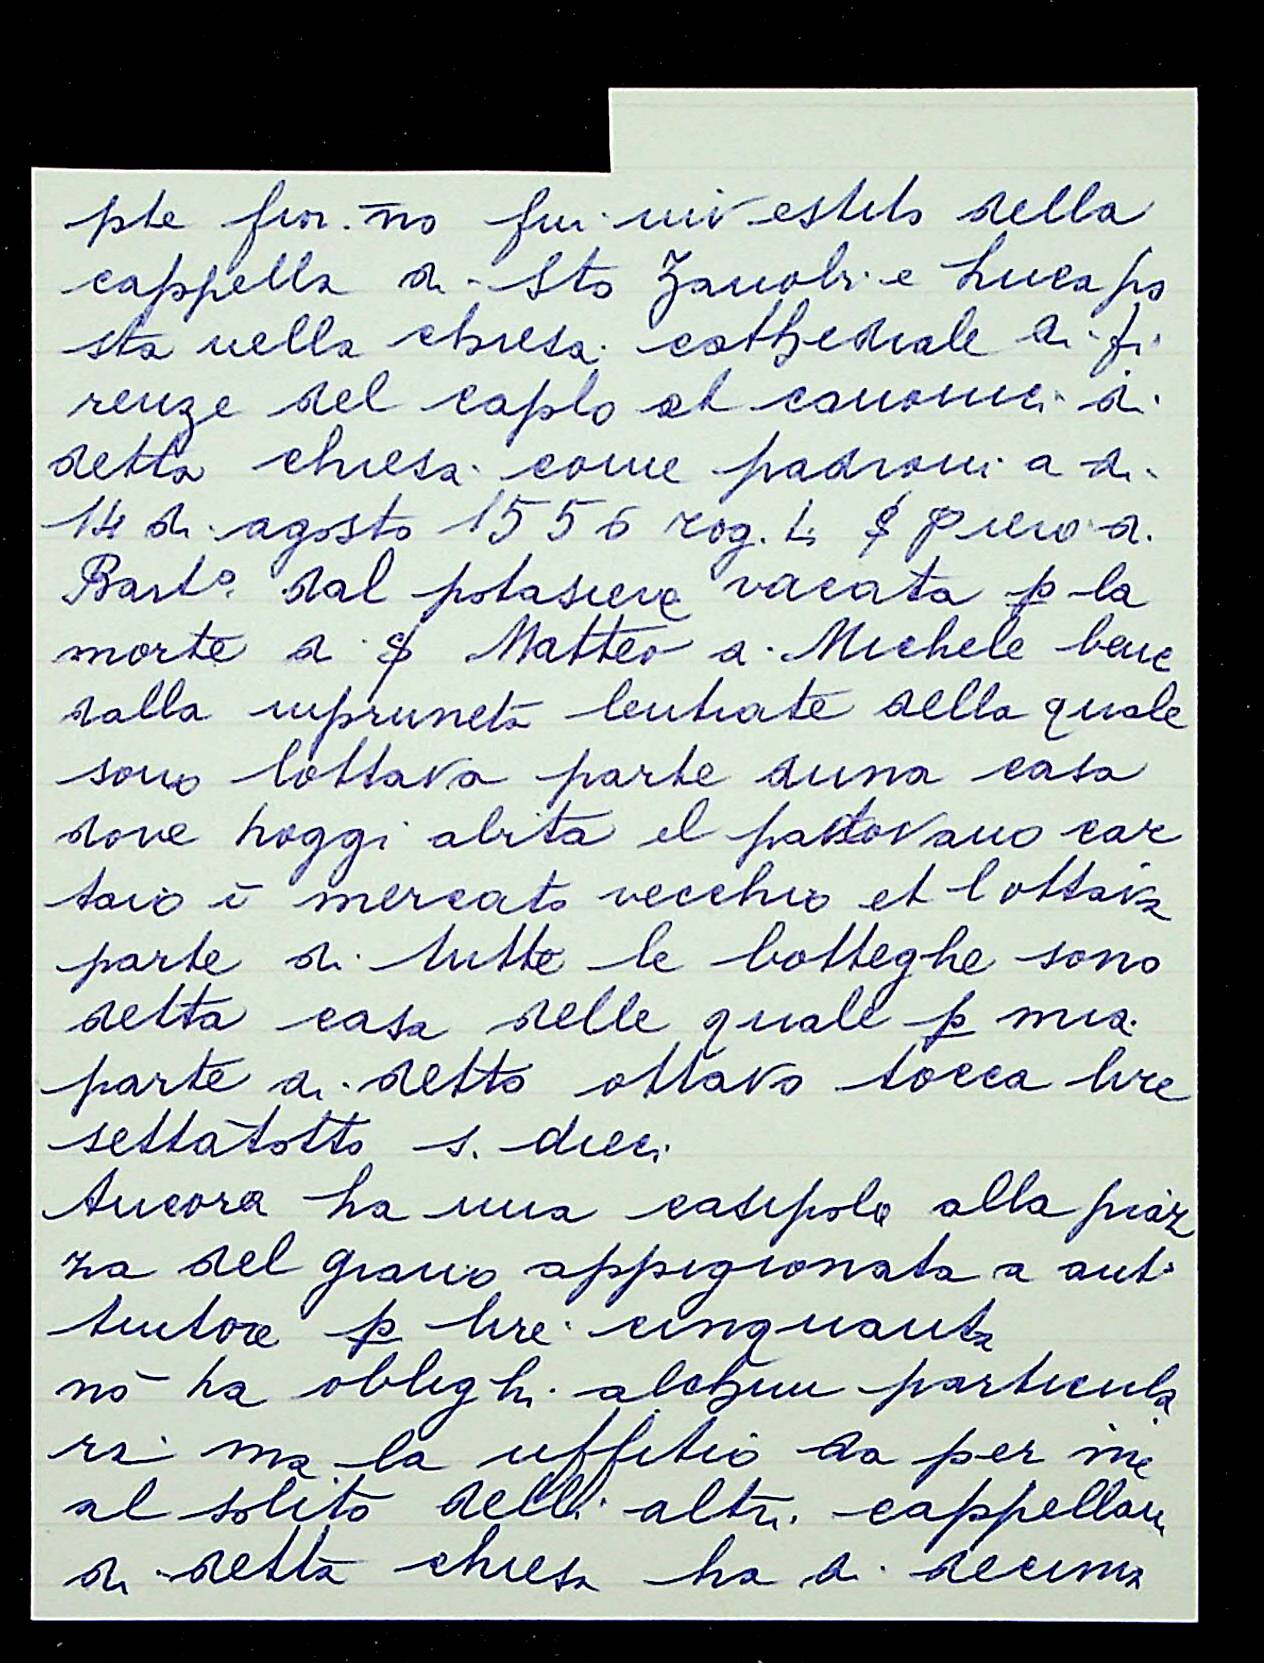 pte fior.no fui investito della
cappella di Sto Zanobi e Luca po
sta nella chiesa cathedrale di fi
renze del caplo et canonici di
detta chiesa come padroni a di
14 di agosto 1556 rog. piero d.
Barto. dal potasieve vacata p la
morte d. Matteo d. Michele bene
dalla inpruneta lentrate della quale
sono lottava parte duna casa
dove hoggi abita el padovano car
taio ī mercato vecchio et lottava
parte di tutte le botteghe sono
detta casa delle quale p mia
parte di detto ottavo tocca lire
settātotto s. dieci
Ancora ha una casipola alla piaz
za del grano appigionata a anto
tintore p lire cinquanta
nō ha oblighi alchuni particula
ri ma la uffitio da per me
al solito delli altri cappellani
di detta chiesa ha di decima